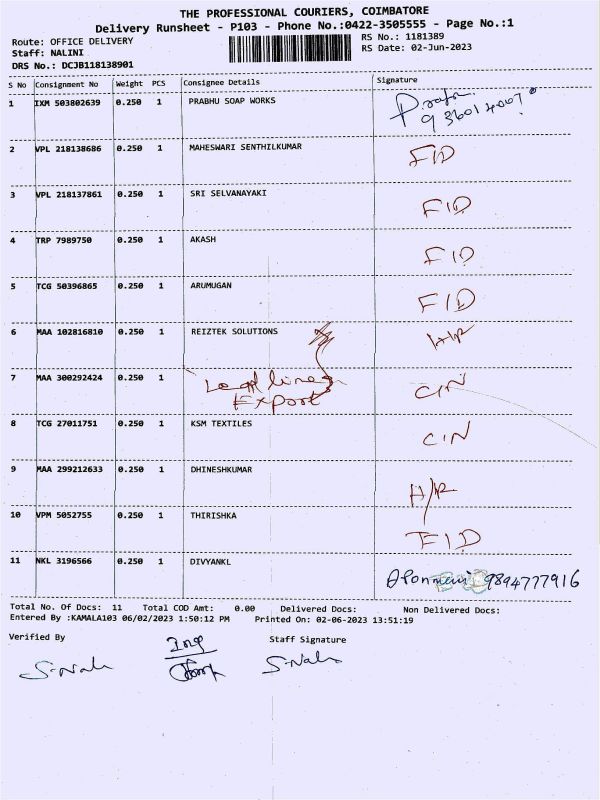 THE PROFESSIONAL COURIERS, COIMBATORE
Delivery Runsheet - P103 - Phone No.:0422-3505555 - Page No.:1
Route: OFFICE DELIVERY RS No.: 1181389
Staff: NALINI RS Date: 02-Jun-2023
DRS No.: DCJB118138901
S No Consignment No Weight PCS Consignee Details Signature
1 IXM 503802639 0.250 1 PRABHU SOAP WORKS
2 VPL 218138686 0.250 1 MAHESWARI SENTHILKUMAR FID
3 VPL 218137861 0.250 1 SRI SELVANAYAKI FID
4 TRP 7989750 0.250 1 AKASH FID
5 TCG 50396865 0.250 1 ARUMUGAN FID
6 MAA 102816810 0.250 1 REIZTEK SOLUTIONS H/R
7 MAA 300292424 0.250 1 CIN
Export
8 TCG 27011751 0.250 1 KSM TEXTILES CIN
9 MAA 299212633 0.250 1 DHINESHKUMAR H/R
10 VPM 5052755 0.250 1 THIRISHKA FID
11 NKL 3196566 0.250 1 DIVYANKL 9894777916
Total No. Of Docs: 11 Total COD Amt: 0.00 Delivered Docs: Non Delivered Docs:
Entered By :KAMALA103 06/02/2023 1:50:12 PM Printed On: 02-06-2023 13:51:19
Verified By Staff Signature